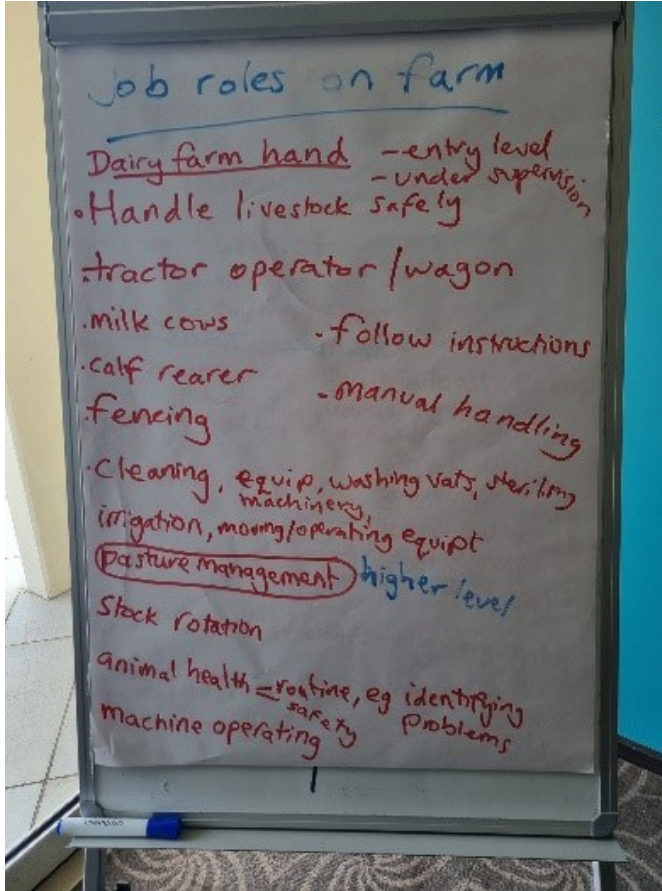 Job roles on farm
Dairy farm hand - entry level
- under supervision
• Handle livestock safely
• tractor operator / wagon
• milk cows
• follow instructions
• calf rearer
- manual handling
• fencing
• cleaning, equip, washing vats,
machinery,
irrigation, moving/operating equipt
pasture management higher level
Stock rotation
animal health = routine, eg identifying
problems
safety
machine operating